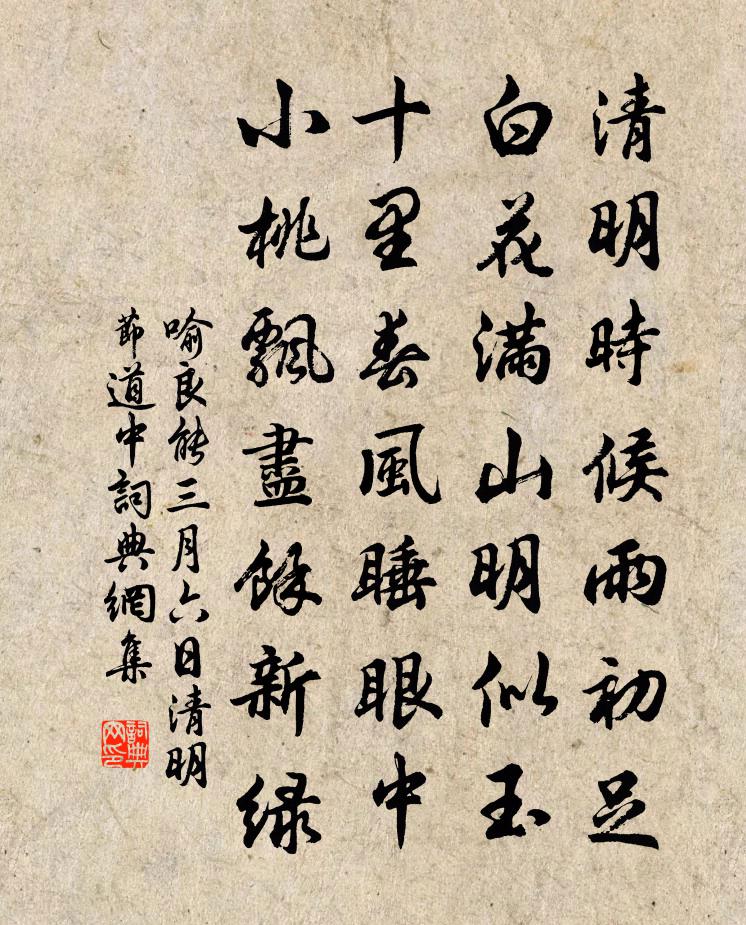 清明時候雨初足
白花滿山明似玉
十里春風睡眼中
小桃飄盡餘新緑
喻良能三月六日清明
節道中詞典網集
詞典网印